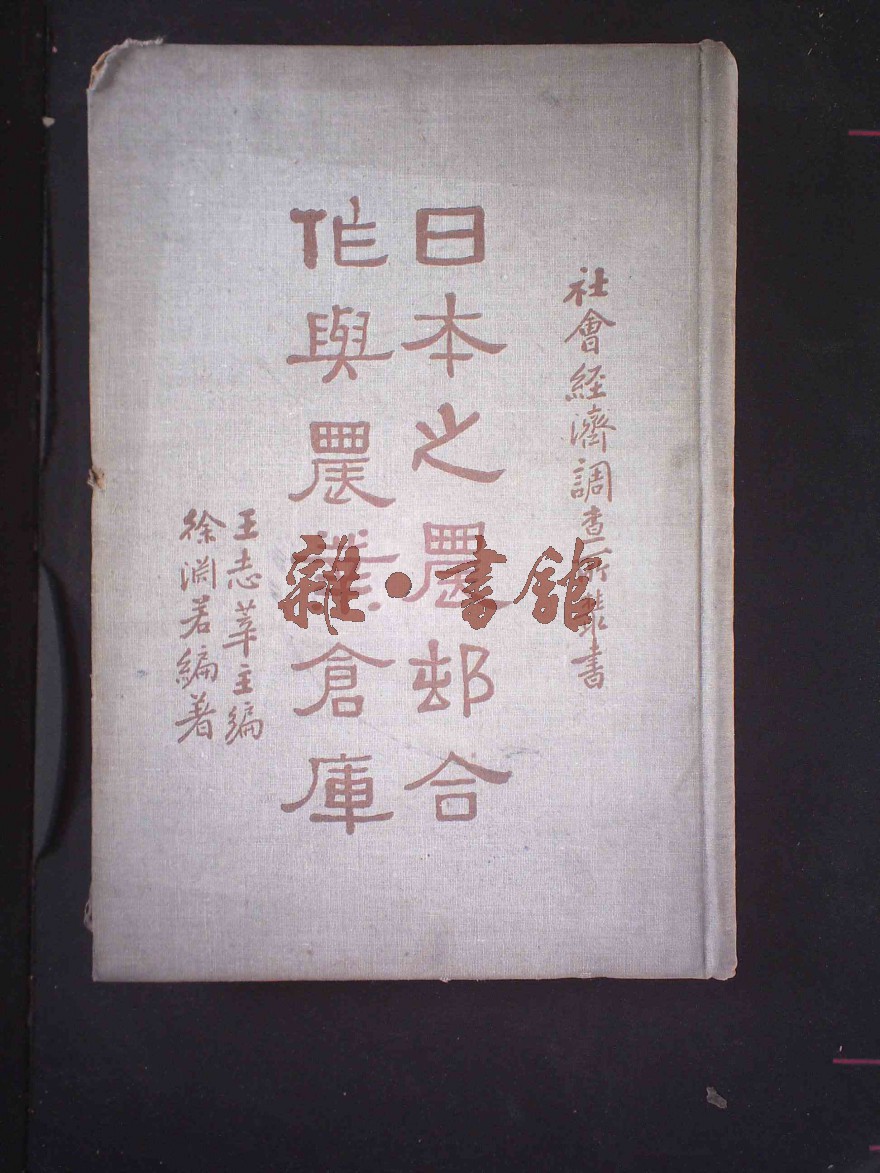 社會經濟調查所叢書
日本之農邨合
作與農業倉庫
王志莘主編
徐淵若編著
雜·書館